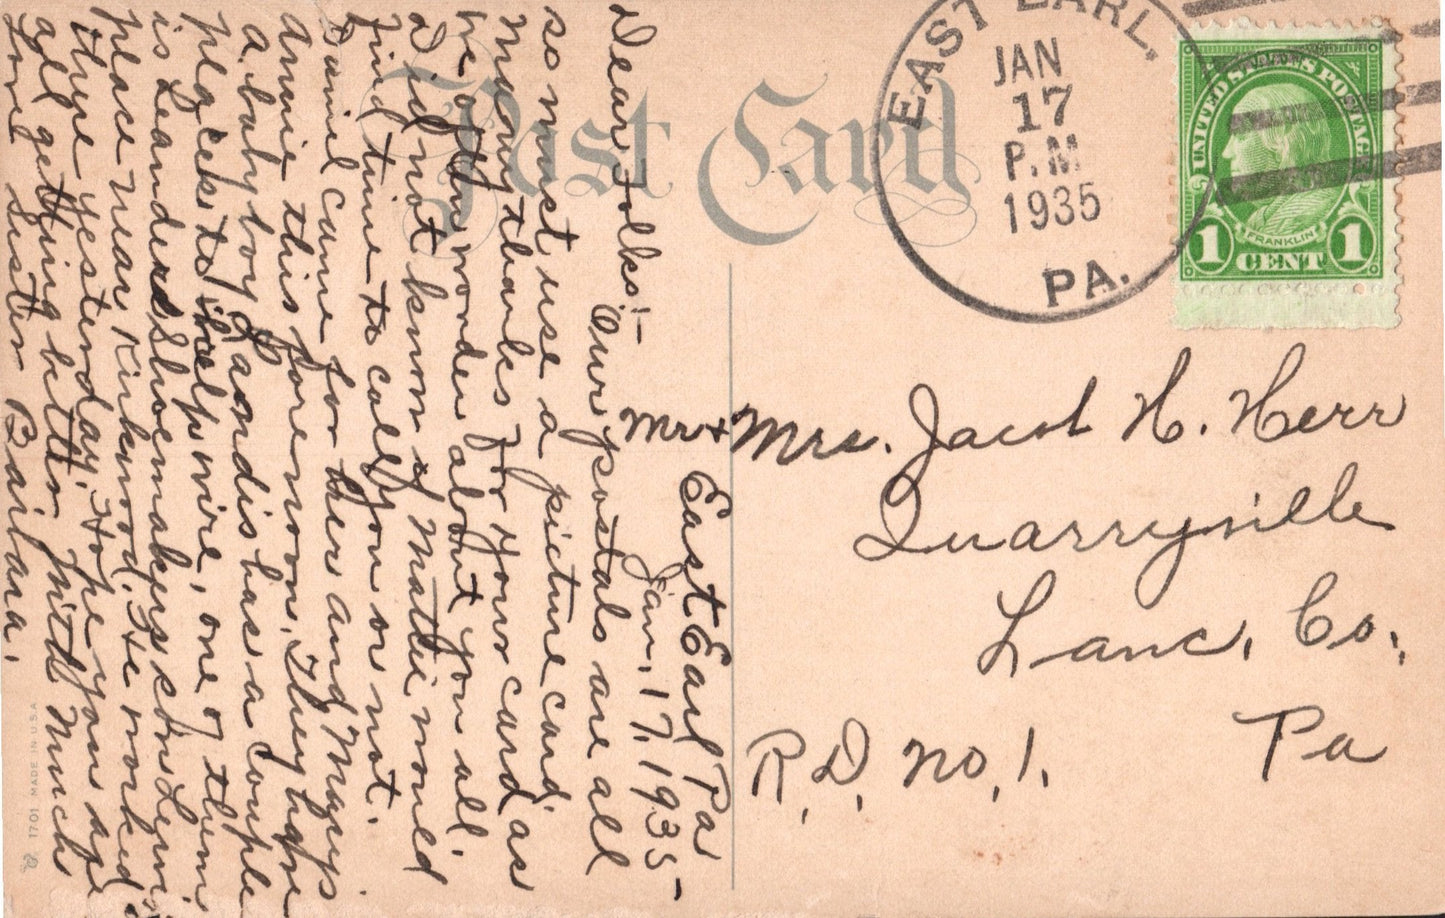 EAST EARL.
JAN
17
P.M
1935
PA.
UNITED STATES POSTAGE
FRANKLIN
1 CENT 1
Post Card
Mr + Mrs. Jacob H. Herr
Quarryville
Lanc. Co.,
R.D. no, 1. Pa
East Earl Pa
Jan, 17, 1935-
Dear Folks:-
Our postals are all
so must use a picture card.
Many thanks for your card as
we often wonder about you all.
Did not know if Mattie would
find time to call you or not.
Daniel came for here and Marys
Annie this forenoon. They have
a baby boy. Landis has a couple
places to help wire, one of them
is Leanders Shoemakers son
please near Kirkwood. He worked
there yesterday. Hope you are
all getting better. With Much
Love Sister Barbara.
1701 MADE IN U.S.A